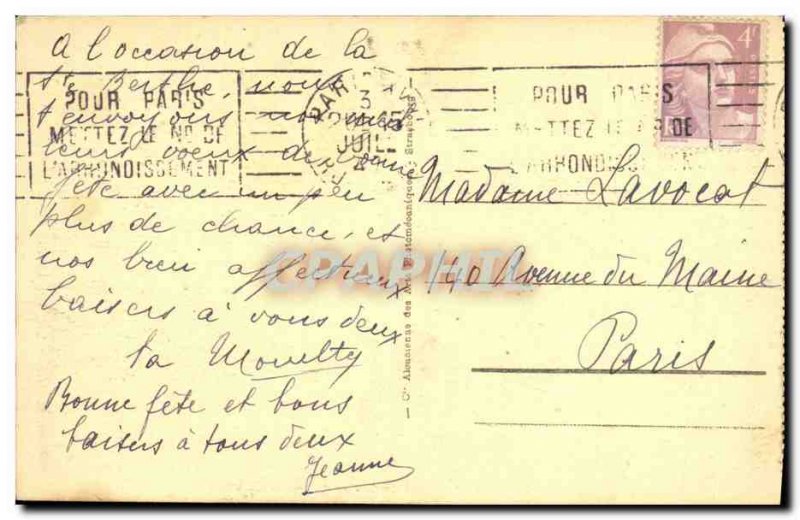 A l'occasion de la
Ste Berthe, nous
t'envoyons nos meil
leurs voeux de bonne
fête avec un peu
plus de chance, et
nos bien affectueux
baisers à vous deux
ta
Bonne fête et bons
baisers à tous deux
Jeanne
POUR PARIS
METTEZ LE No DE
L'ARRONDISSEMENT
PARIS
3
JUIL
POUR PARIS
METTEZ LE No DE
L'ARRONDISSEMENT
4F
Madame Lavocat
140 Avenue du Maine
Paris
— Cie Alsacienne des Arts Photomécaniques Strasbourg
CPAPHIL